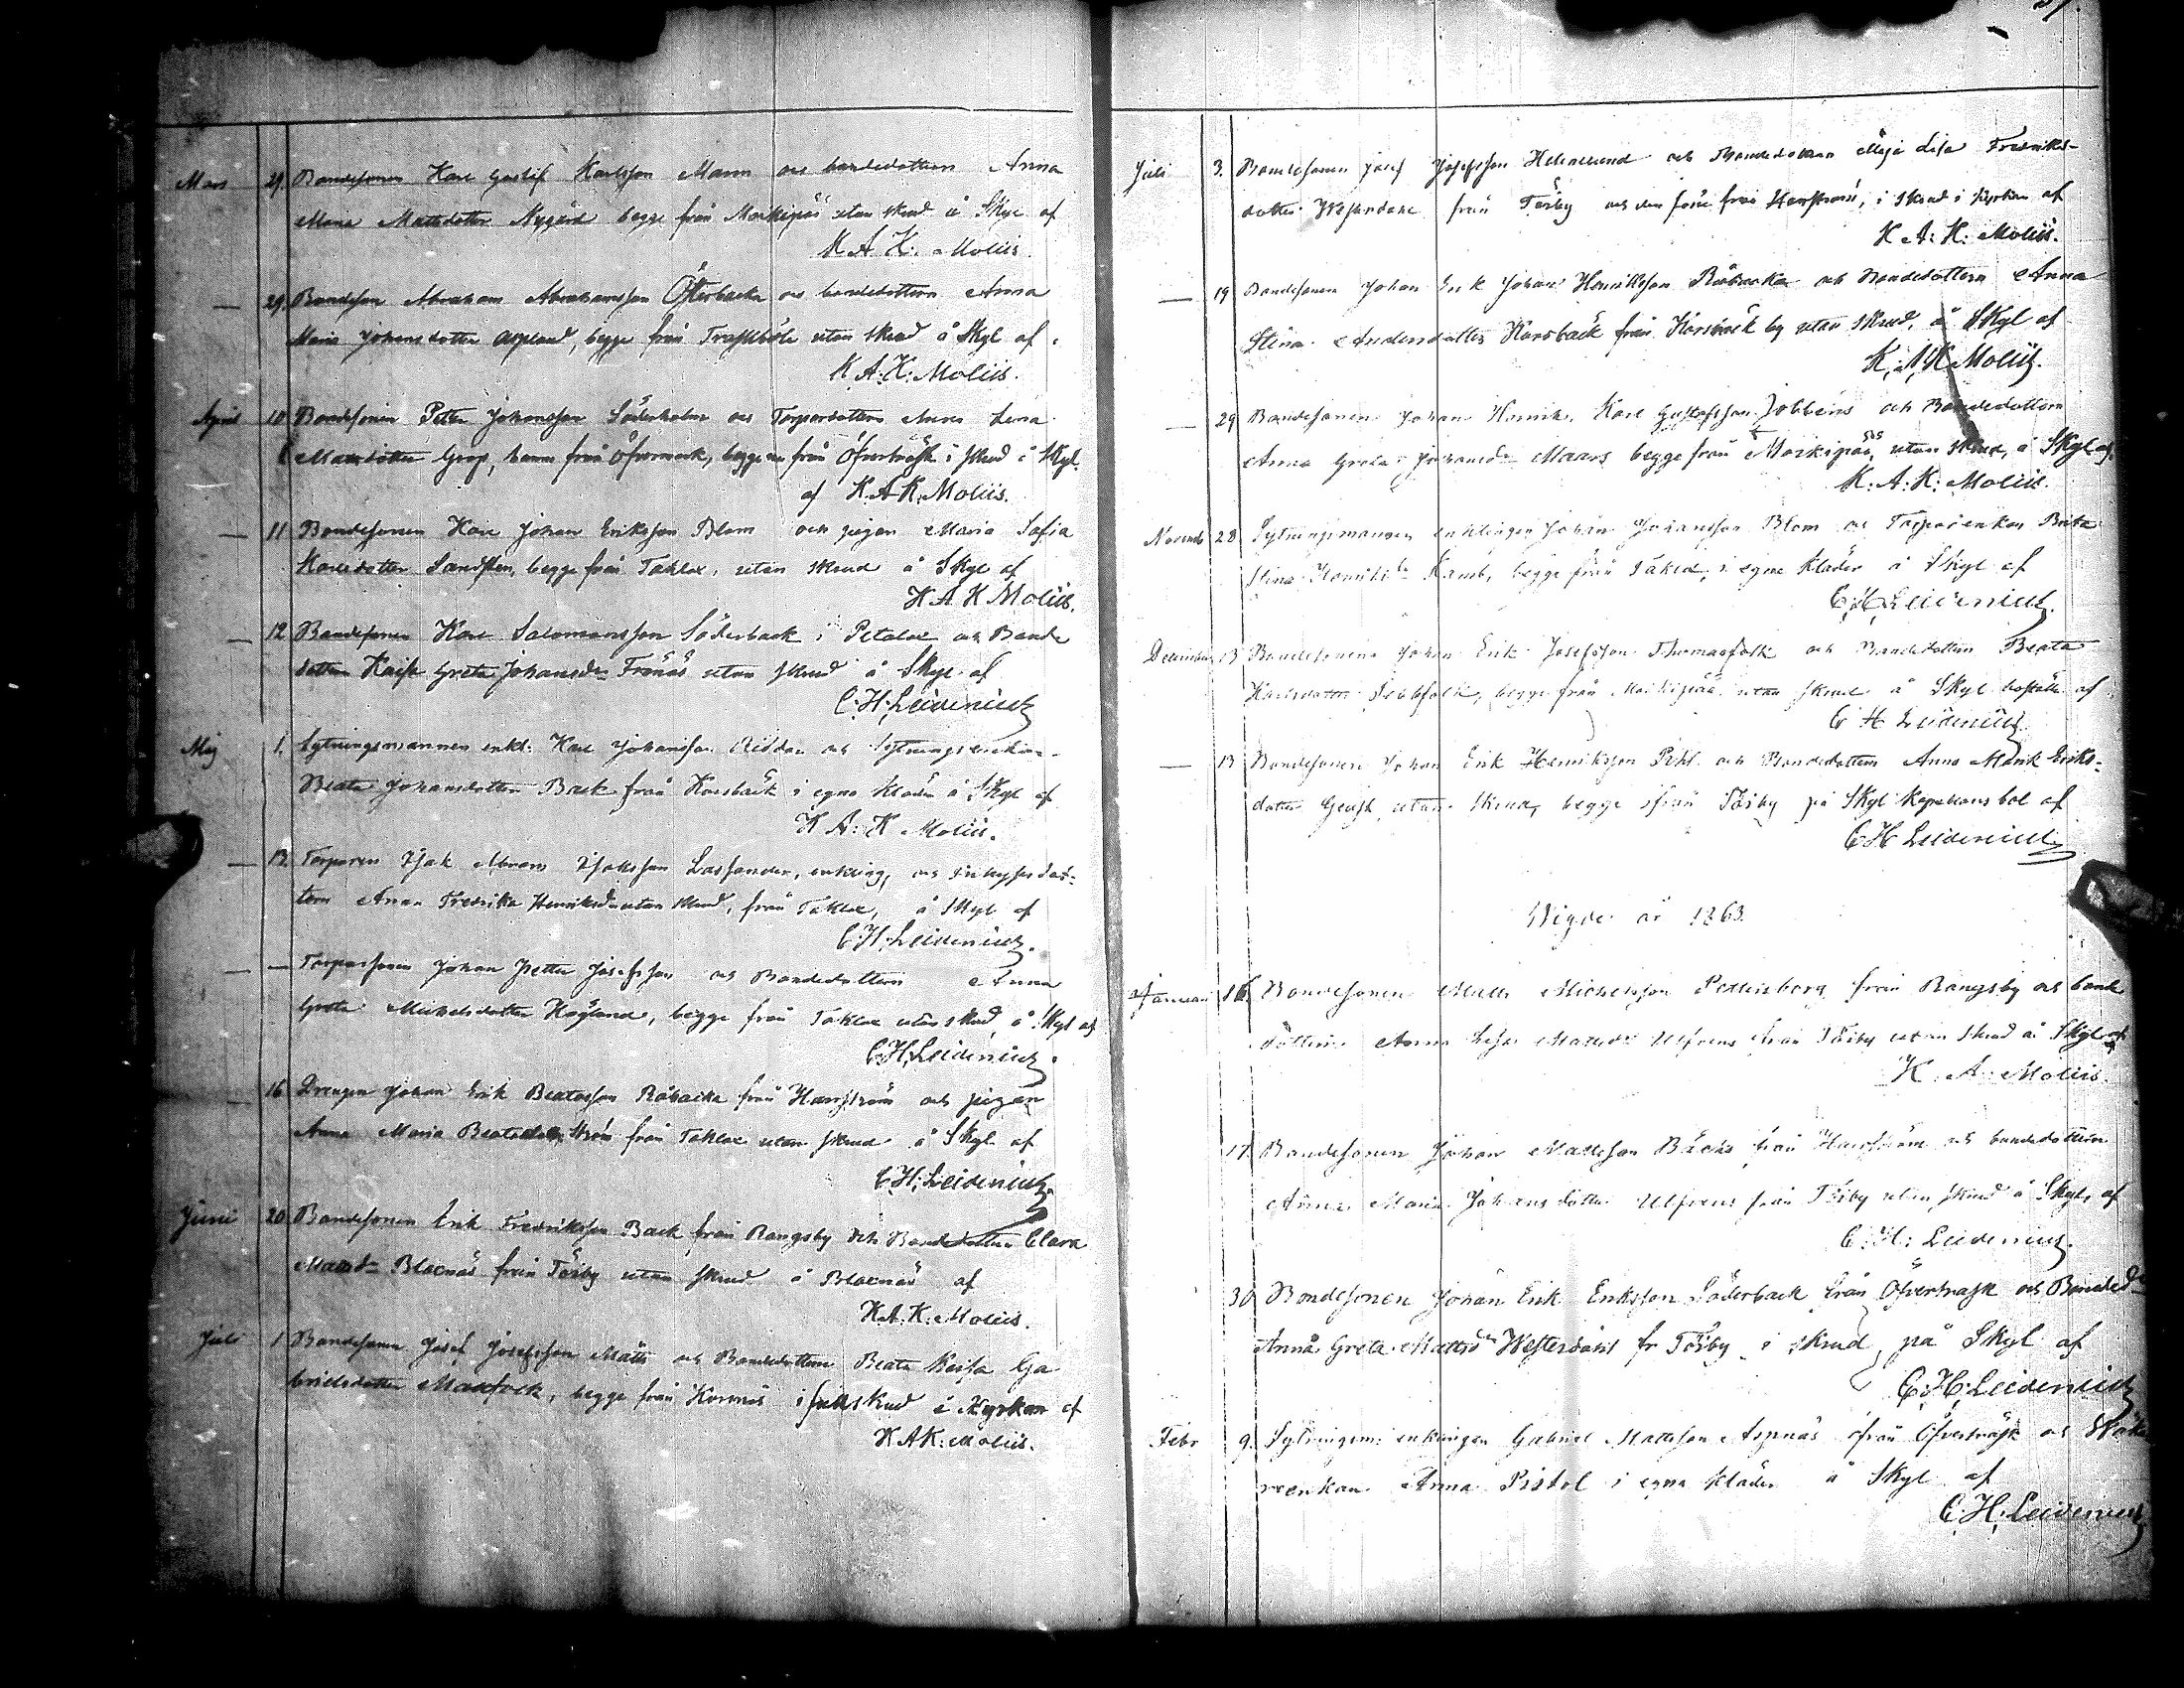 Mars 29 Bondesonen Karl Gustaf Karlsson Mann och bondedottern Anna
Maria Mattsdotter Nygård begge från Morkipää utan skrud å Skyl af
K. A. K. Moliis.
— 29. Bondeson Abraham Abrahamsson Österbacka och bondedottern Anna
Maria Johansdotter Asplund, begge från Träskböle utan skrud å Skyl af
K. A. K. Moliis.
April 10 Bondesonen Petter Johansson Söderholm och Torpardottern Anna Lena
Matsdotter Grop, från Öfvermark, begge från Öfverträsk i skrud å Skyl.
af K. A. K. Moliis.
— 11 Bondesonen Karl Johan Eriksson Blom och pigan Maria Sofia
Karlsdotter Sandsten, begge från Taklax, utan skrud å Skyl af
K A K Moliis.
— 12 Bondesonen Karl Salomonsson Söderback i Petalax och Bonde
dottern Kaisa Greta Johansdr Frönäs utan skrud å Skyl af
C. H. Leidenius
Maj 1. Sytningsmannen enkl. Karl Johansson Riddar och Sytningsenkan
Beata Johansdotter Back från Korsbäck i egna kläder å Skyl af
K A. K Moliis.
— 13. Torparen Isak Abram Isaksson Lassander, enkling, och inhysesdot-
tern Anna Fredrika Henriksdr utan skrud, från Taklax, å Skyl af
C. H. Leidenius.
— — Torparsonen Johan Petter Josefsson och Bondedottern Anna
Greta Mickelsdotter Högland, begge från Taklax utan skrud, å Skyl af
C. H. Leidenius.
— 16 Drengen Johan Erik Beatasson Råbacka från Harrström och pigan
Anna Maria Beatadotter Ström från Taklax utan skrud å Skyl af
C. H. Leidenius.
Juni 20 Bondesonen Erik Fredriksson Back från Rangsby och Bondedottern Clara
Matsdr Blacnäs från Töjby utan skrud å Blacnäs af
K. A. K. Moliis.
Juli 1 Bondesonen Josef Josefsson Mätts och Bondedottern Beata Kaisa Ga
brielsdotter Massfolk, begge från Korsnäs i full skrud i Kyrkan af
K A K. Moliis.
Juli 3. Bondesonen Josef Josefsson och Bondedottern Maja Lisa Fredriks-
dotter Westerdahl från Töjby och den förre från Harrström, i skrud i kyrkan af
K. A. K. Moliis.
— 19 Bondesonen Johan Erik Johan Henriksson Råbacka och Bondedottern Anna
Stina Andersdotter Korsbäck från Korsbäck by utan skrud, å Skyl af
K. A. K. Moliis.
— 29 Bondesonen Johan Henrik Karl Gustafsson Jobbens och Bondedottern
Anna Greta Johansdr Maars begge från Morkipää, utan skrud, å Skyl af
K. A. K. Moliis.
Novemb 28 Sytningsmannen enklingen Johan Johansson Blom och Torparenkan Brita
Stina Henriksdr Kamb, begge från Taklax, i egna kläder å Skyl af
C. H. Leidenius.
December 13 Bondesonen Johan Erik Josefsson Thomasfolk och Bondedottern Beata
Karlsdotter Sebbfolk, begge från Morkipää utan skrud å Skyl boställe af
C H Leidenius
— 13 Bondesonen Johan Erik Henriksson Pihl och Bondedottern Anna Maria Eriks-
dotter utan skrud, begge ifrån Töjby på Skyl Kapellansbol af
C H Leidenius
Wigde år 1863.
Januari 16. Bondesonen Matts Michelsson Pettersborg från Rangsby och bonde
dottern Anna Lisa Mattsdr Ulfvens från Töjby utan skrud å Skyl af
K. A. Moliis.
17. Bondesonen Johan Mattsson Bäcks från Harrström och bondedottern
Anna Maria Johansdotter Ulfvens från Töjby utan skrud å Skyl, af
C. H. Leidenius.
30 Bondesonen Johan Erik Eriksson Söderback från Öfverträsk och Bondedr
Anna Greta Mattsdr Westerdahl fr Töjby i skrud, på Skyl af
C. H. Leidenius
Febr 9. Sytningsm. enklingen Gabriel Mattsson Aspnäs från Öfverträsk och
renkan Anna Pistol i egna kläder å Skyl af
C. H. Leidenius